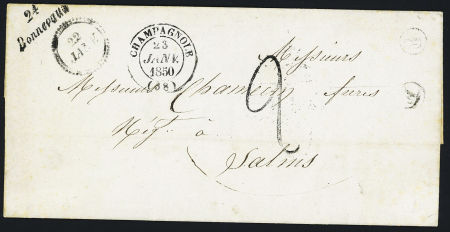 24
Bonnevaux
22
JANV.
CHAMPAGNOLE
23
JANV.
1850
(38)
Messieurs
Messieurs frères
2
Nég.ts à
Salins